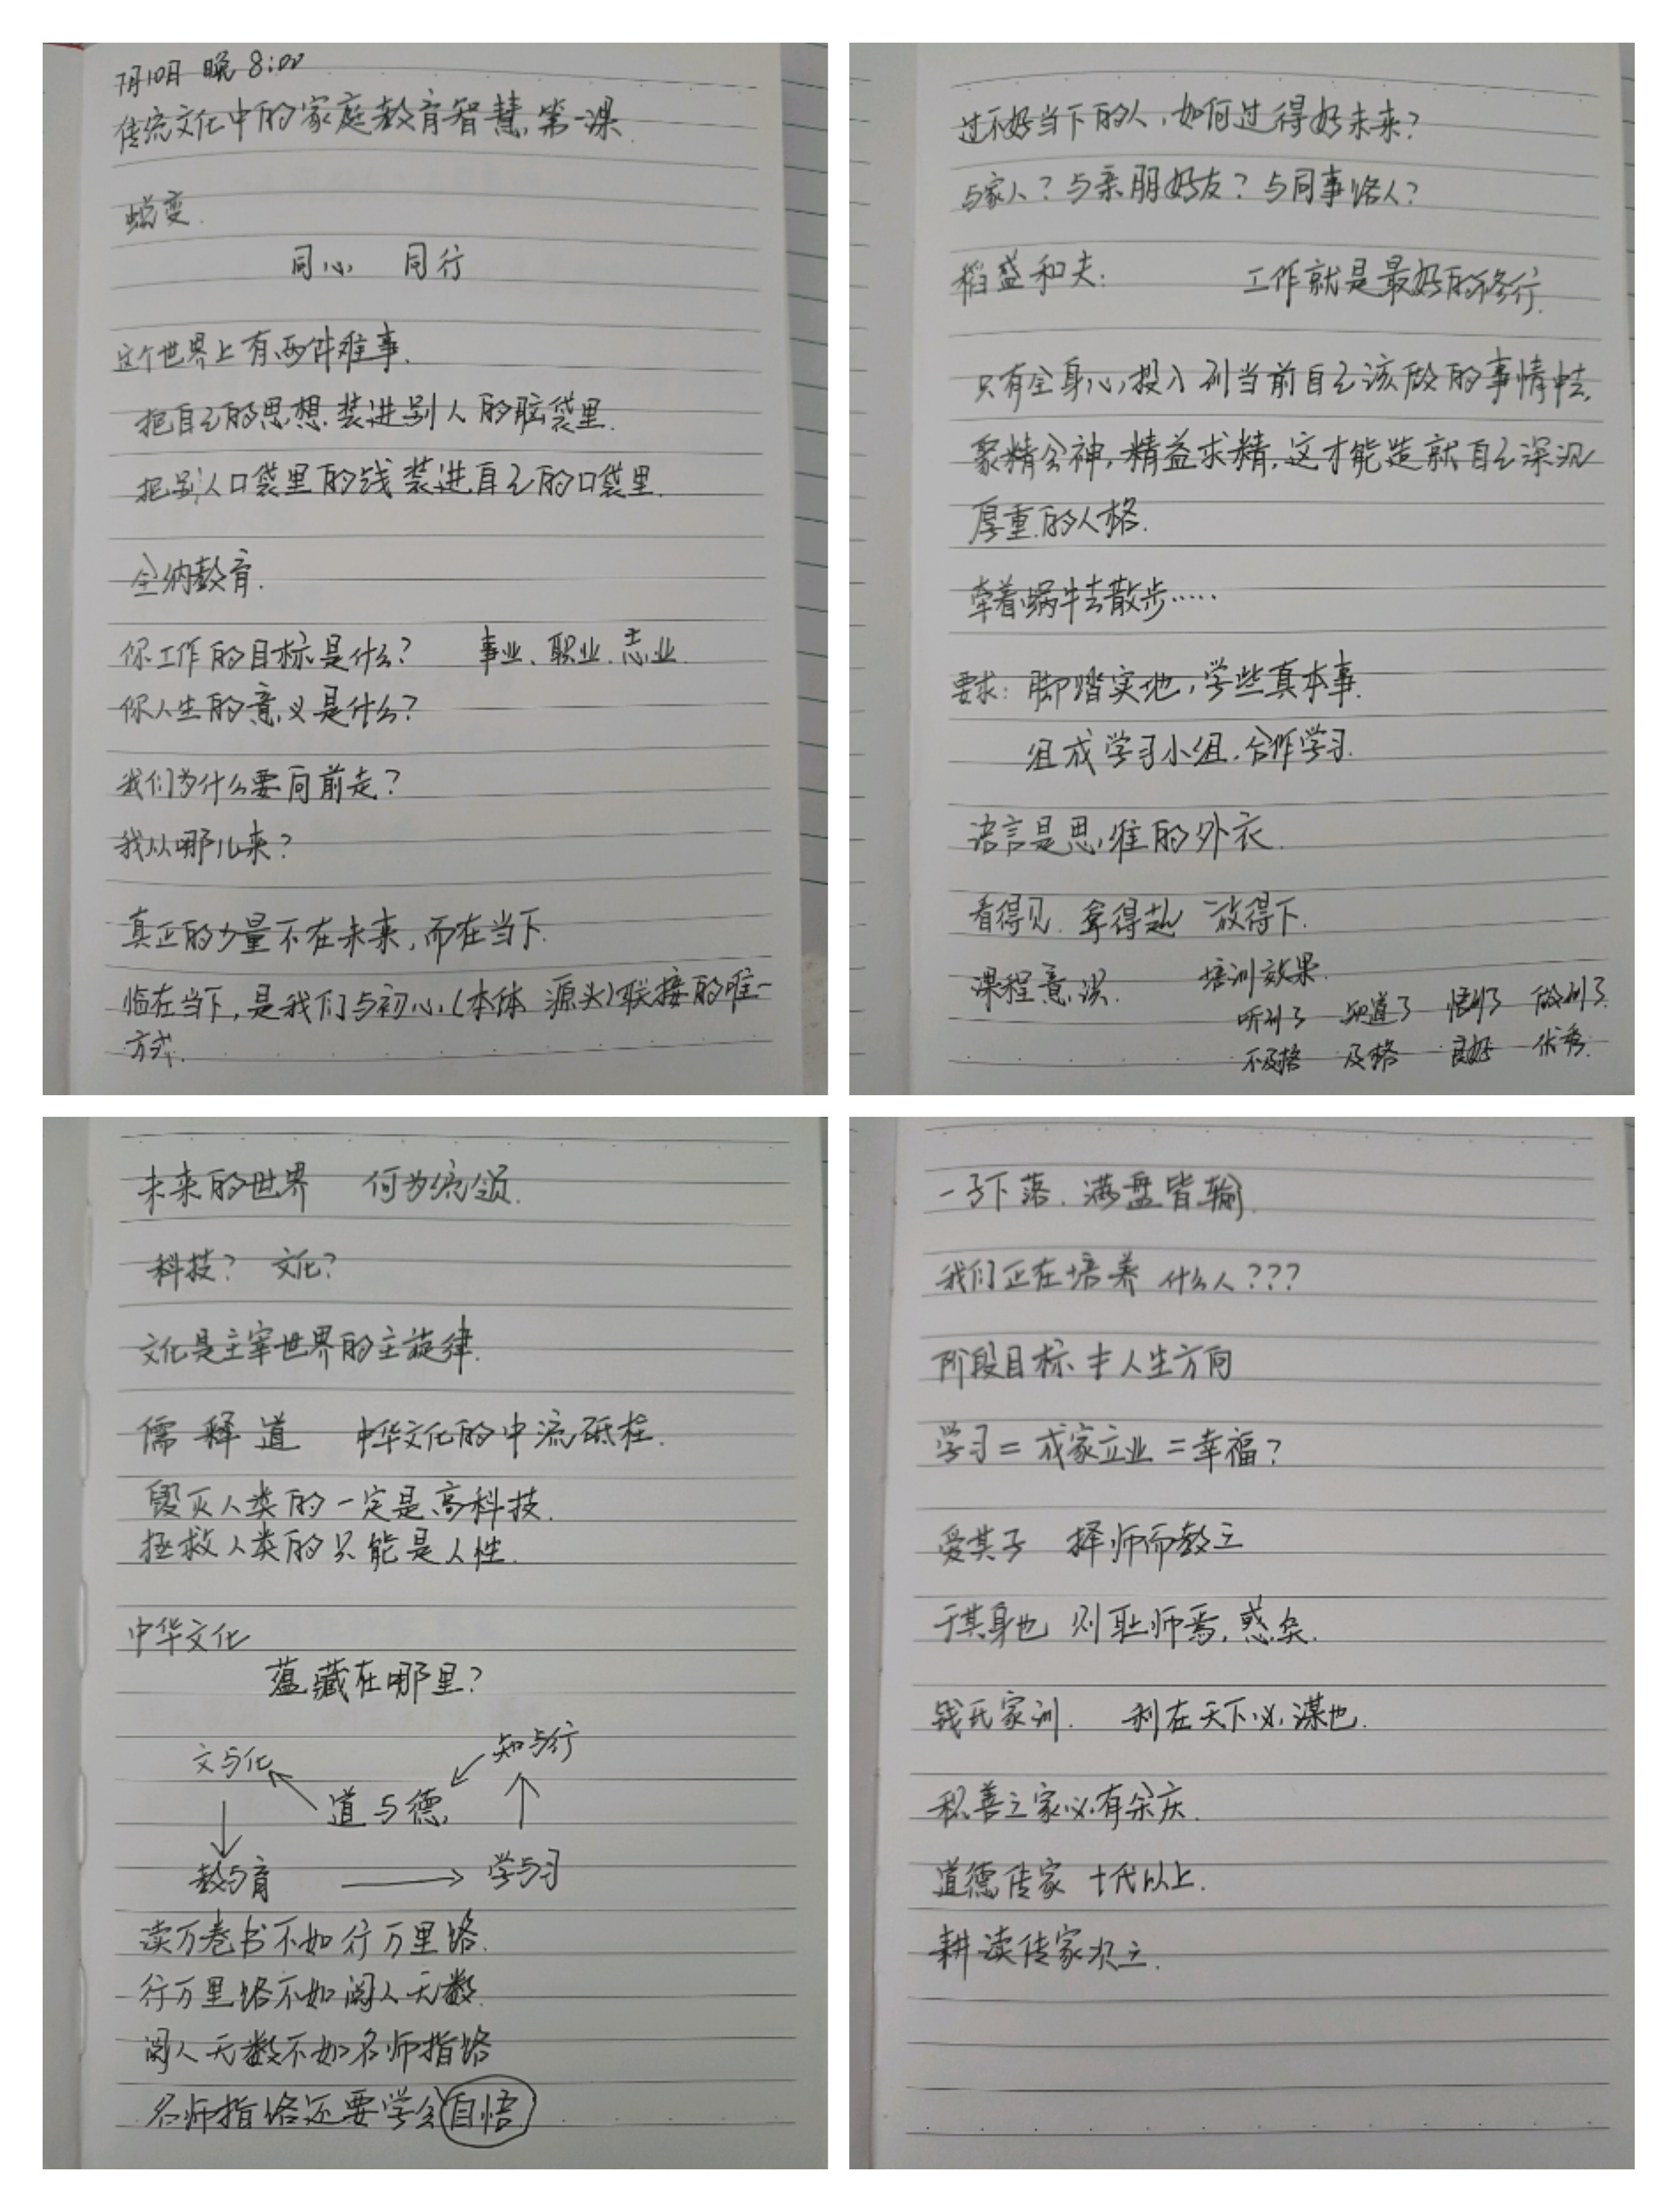 7月10日 晚 8:00
传统文化中的家庭教育智慧 第一课.
蜕变.
同心 同行
这个世界上有两件难事.
把自己的思想装进别人的脑袋里.
把别人口袋里的钱装进自己的口袋里.
全纳教育.
你工作的目标是什么? 事业、职业、志业.
你人生的意义是什么?
我们为什么要向前走?
我从哪儿来?
真正的力量不在未来,而在当下.
临在当下,是我们与初心(本体 源头)联接的唯一
方式.
过不好当下的人,如何过得好未来?
与家人?与亲朋好友?与同事路人?
稻盛和夫: 工作就是最好的修行.
只有全身心投入到当前自己该做的事情中去,
聚精会神,精益求精,这才能造就自己深沉
厚重的人格.
牵着蜗牛去散步……
要求: 脚踏实地,学些真本事.
组成学习小组,合作学习.
语言是思维的外衣.
看得见 拿得起 放得下.
课程意识. 培训效果.
听到了 知道了 悟到了 做到了.
不及格 及格 良好 优秀.
未来的世界 何为统领.
科技? 文化?
文化是主宰世界的主旋律.
儒 释 道 中华文化的中流砥柱.
毁灭人类的一定是高科技.
拯救人类的只能是人性.
中华文化
蕴藏在哪里?
文与化 知与行
道与德
教与育 学与习
读万卷书不如行万里路.
行万里路不如阅人无数.
阅人无数不如名师指路
名师指路还要学会自悟
一子下落.满盘皆输.
我们正在培养 什么人???
阶段目标 ≠人生方向
学习=成家立业=幸福?
爱其子 择师而教之
于其身也 则耻师焉,惑矣.
钱氏家训. 利在天下必谋也.
积善之家必有余庆.
道德传家 十代以上.
耕读传家次之.